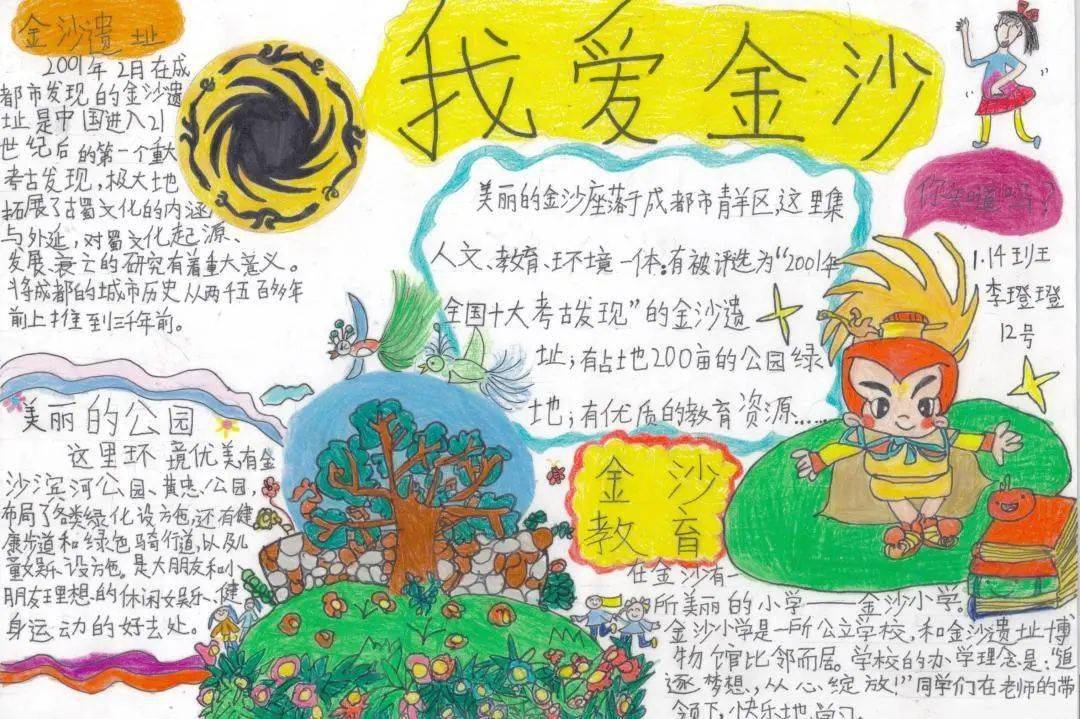 我爱金沙
金沙遗址
2001年2月在成
都市发现的金沙遗
址是中国进入21
世纪后的第一个重大
考古发现,极大地
拓展了古蜀文化的内涵
与外延,对蜀文化起源、
发展、衰亡的研究有着重大意义。
将成都的城市历史从两千五百多年
前上推到三千年前。
美丽的金沙座落于成都市青羊区,这里集
人文、教育、环境一体:有被评选为“2001年
全国十大考古发现”的金沙遗
址;有占地200亩的公园绿
地;有优质的教育资源……
你知道吗?
1.14班王
李璒璒
12号
美丽的公园
这里环境优美有金
沙滨河公园、黄忠公园,
布局了各类绿化设施,还有健
康步道和绿色骑行道,以及儿
童娱乐设施。是大朋友和小
朋友理想的休闲娱乐、健
身运动的好去处。
金沙
教育
在金沙有一
所美丽的小学——金沙小学。
金沙小学是一所公立学校,和金沙遗址博
物馆比邻而居。学校的办学理念是:“追
逐梦想,从心绽放!”同学们在老师的带
领下,快乐地学习